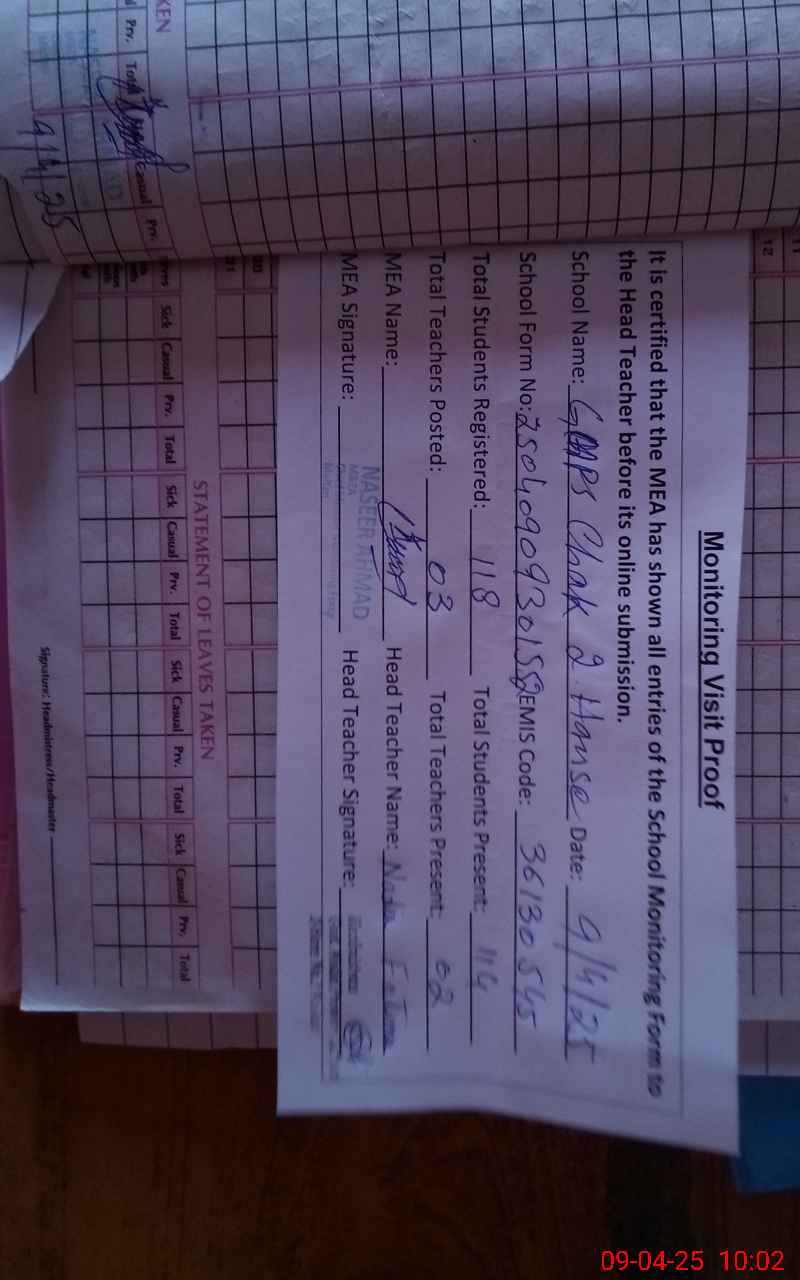 Monitoring Visit Proof
It is certified that the MEA has shown all entries of the School Monitoring Form to
the Head Teacher before its online submission.
School Name: GMPS Chak 2. House Date: 9/4/25
School Form No: 25040909301552 EMIS Code: 36130545
Total Students Registered: 118 Total Students Present: 114
Total Teachers Posted: 03 Total Teachers Present: 02
MEA Name: Head Teacher Name: Nadia Fatima
NASEER AHMAD
MEA Signature: Head Teacher Signature:
STATEMENT OF LEAVES TAKEN
Sick Casual Prv. Total Sick Casual Prv. Total Sick Casual Prv. Total Sick Casual Prv. Total
Signature: Headmistress/Headmaster
KEN
Prv. Total Casual Prv.
9/4/25
11
12
09-04-25 10:02